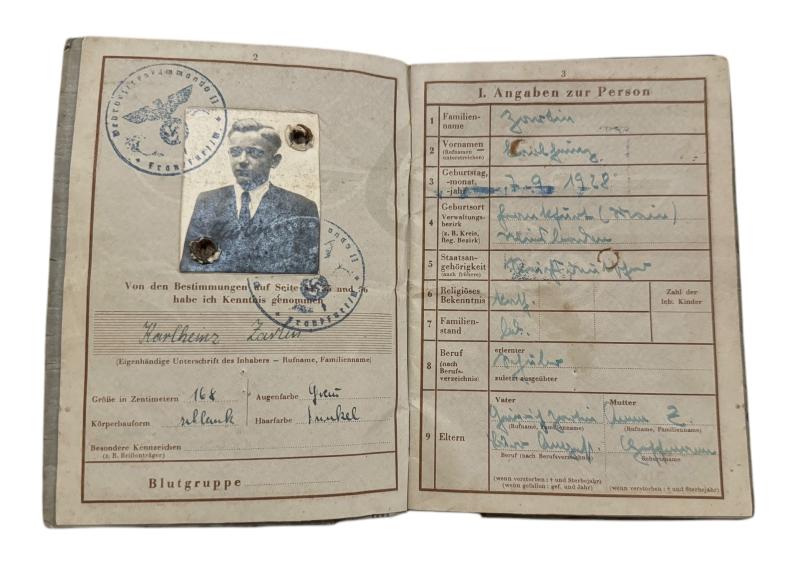 2
Wehrbezirkskommando II
Frankfurt/M.
Von den Bestimmungen auf Seite und 56
habe ich Kenntnis genommen
Karlheinz
(Eigenhändige Unterschrift des Inhabers — Rufname, Familienname)
Größe in Zentimetern 168 Augenfarbe Grau
Körperbauform schlank Haarfarbe dunkel
Besondere Kennzeichen
(z. B. Brillenträger)
Blutgruppe
3
I. Angaben zur Person
1 Familien-
name
2 Vornamen
(Rufnamen
unterstreichen)
3 Geburtstag,
-monat,
-jahr 7. 9. 1928
4 Geburtsort Frankfurt (Main)
Verwaltungs-
bezirk Wiesbaden
(z. B. Kreis,
Reg. Bezirk)
5 Staatsan-
gehörigkeit
(auch frühere)
6 Religiöses
Bekenntnis kath.
Zahl der
leb. Kinder
7 Familien-
stand led.
8 Beruf
(nach
Berufs-
verzeichnis)
erlernter
Schüler
zuletzt ausgeübter
9 Eltern
Vater Mutter
(Rufname, Familienname) (Rufname, Familienname)
Beruf (nach Berufsverzeichnis) Geburtsname
(wenn verstorben: † und Sterbejahr)
(wenn gefallen: gef. und Jahr)
(wenn verstorben: † und Sterbejahr)